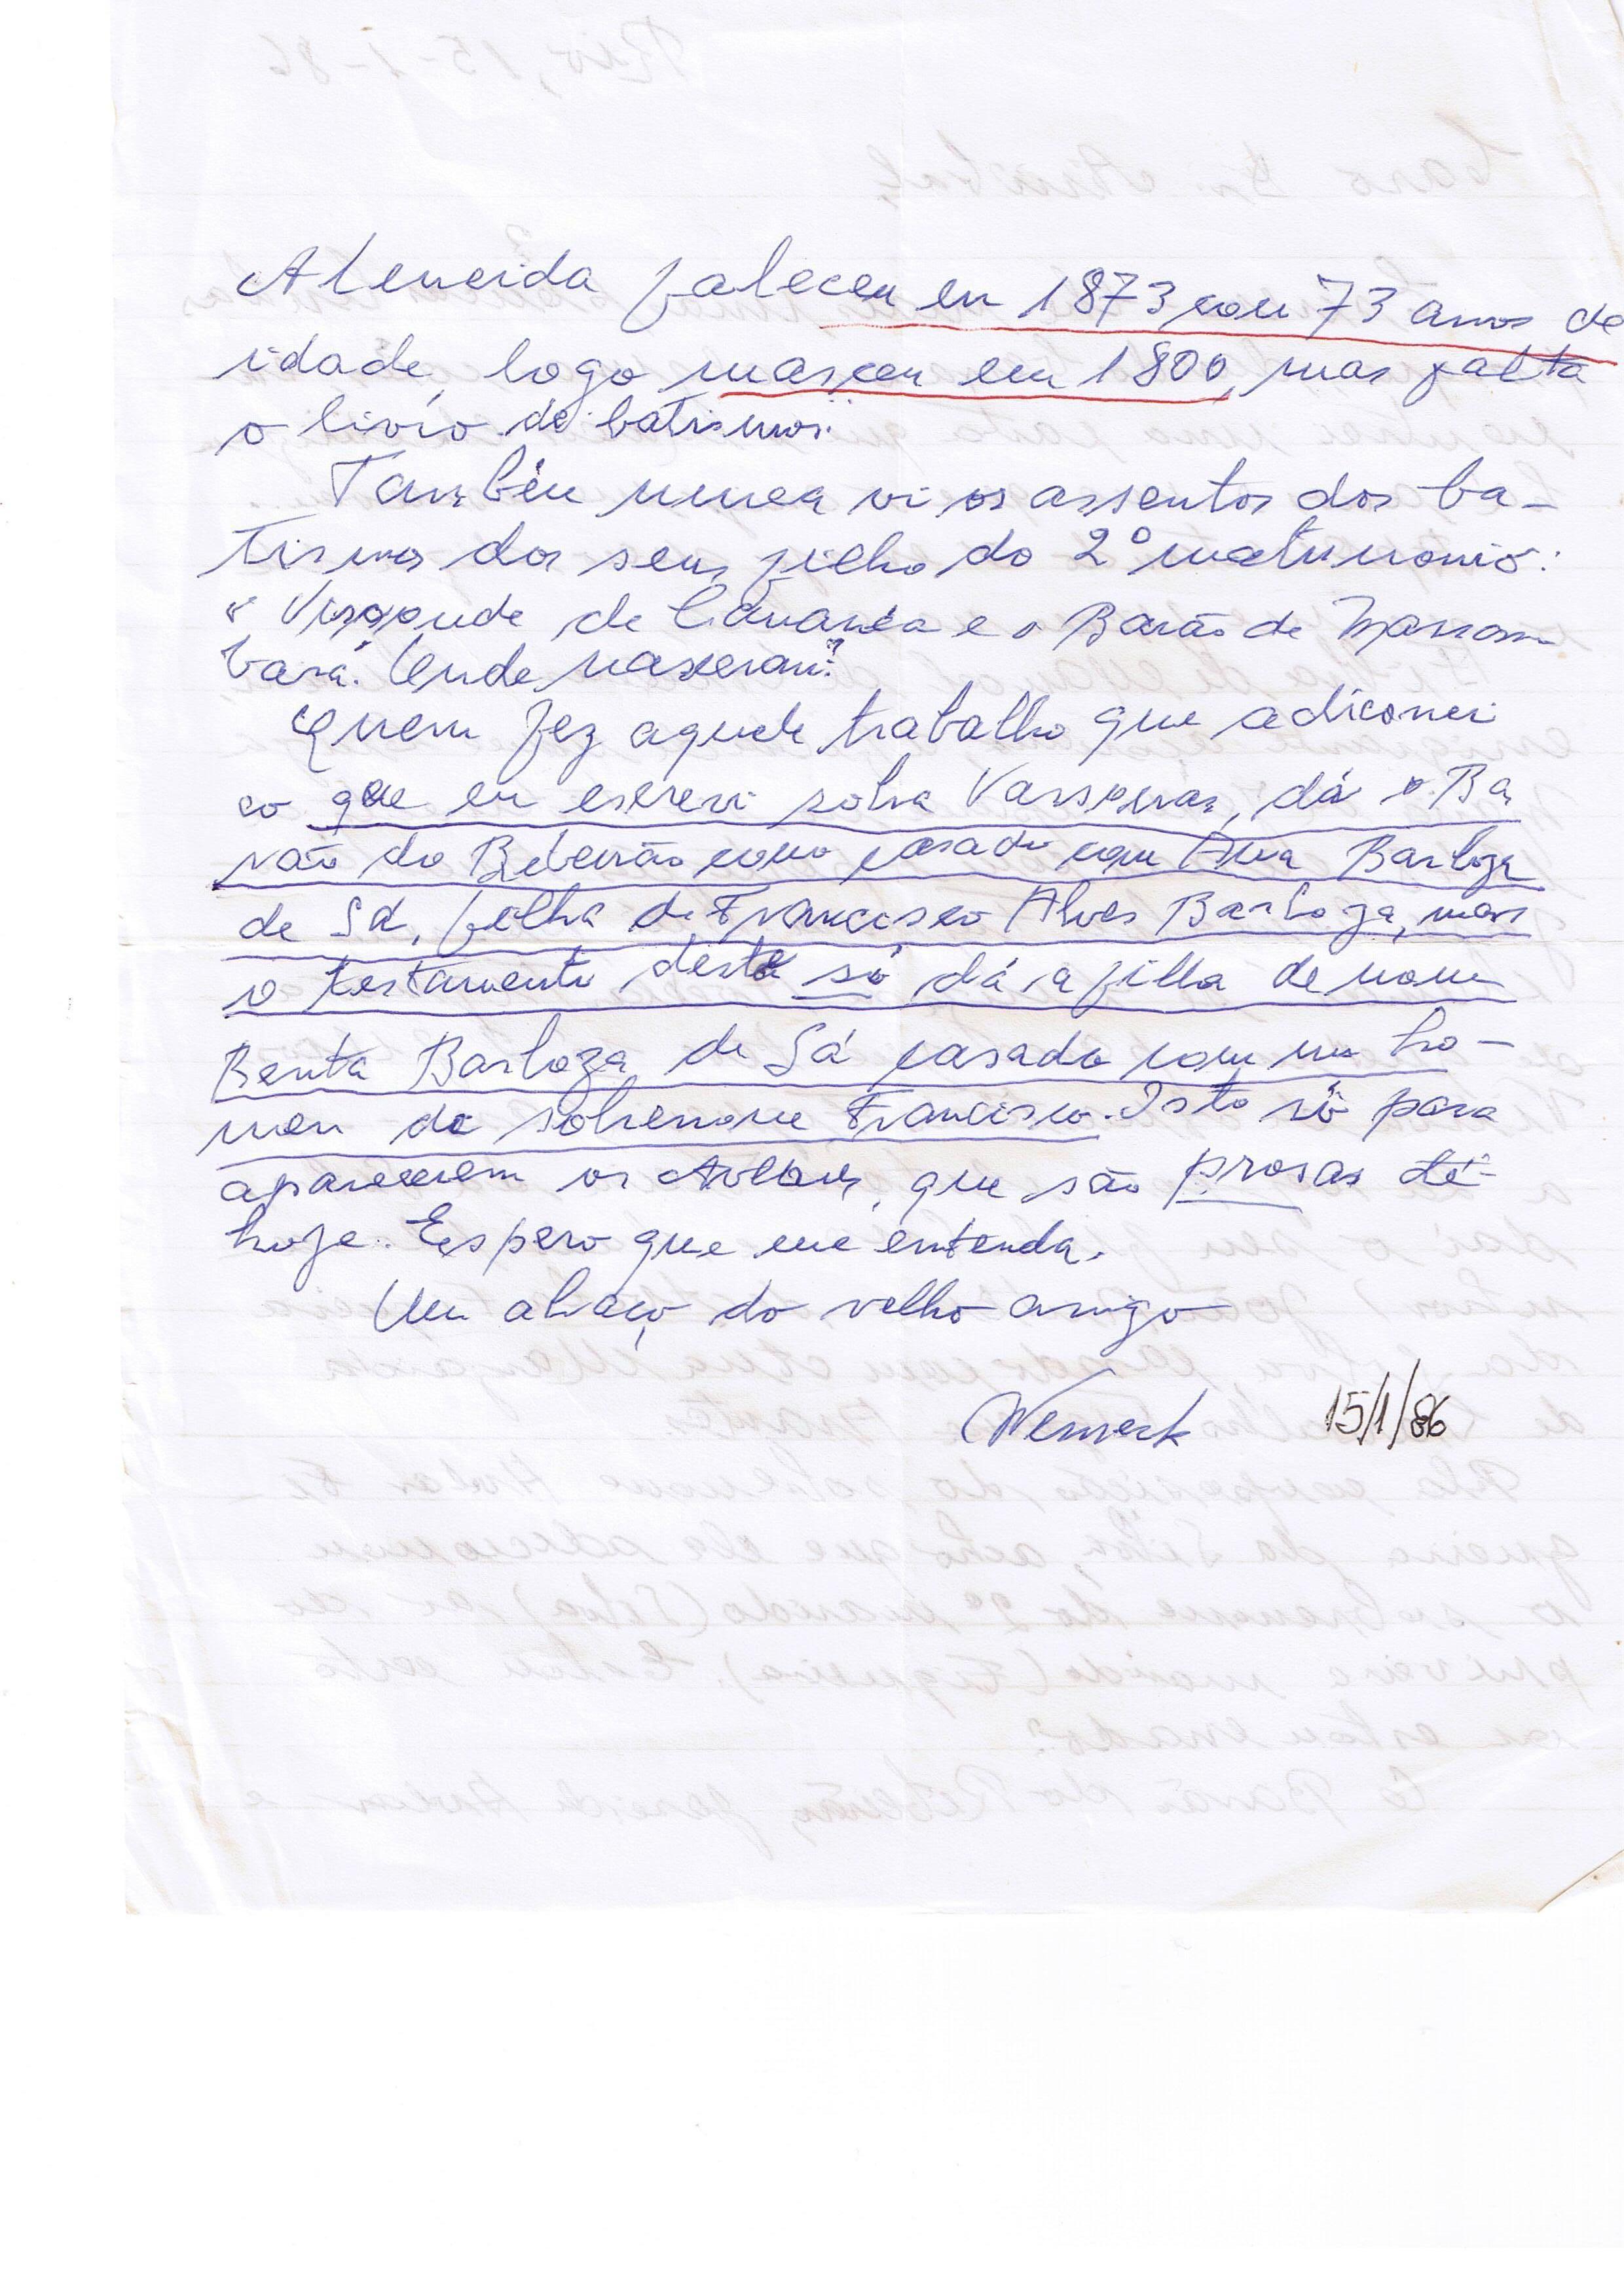 Almeida faleceu em 1873 com 73 anos de
idade, logo nasceu em 1800, mas falta
o livro de batismos.
Também nunca vi os assentos dos ba-
tismos dos seus filho do 2º matrimonio:
o Visconde de Cananéa e o Barão de Massam
bará. Onde nasceram?
Quem fez aquele trabalho que adicionei
ao que eu escrevi sobre Vassouras, dá o Ba
rão do Ribeirão como casado com Ana Barboza
de Sá, filha de Francisco Alves Barboza, mas
o testamento deste só dá a filha de nome
Benta Barboza de Sá casada com um ho-
mem de sobrenome Francisco. Isto só para
aparecerem os Avelar, que são prosas té
hoje. Espero que me entenda.
Um abraço do velho amigo
Werneck 15/1/86